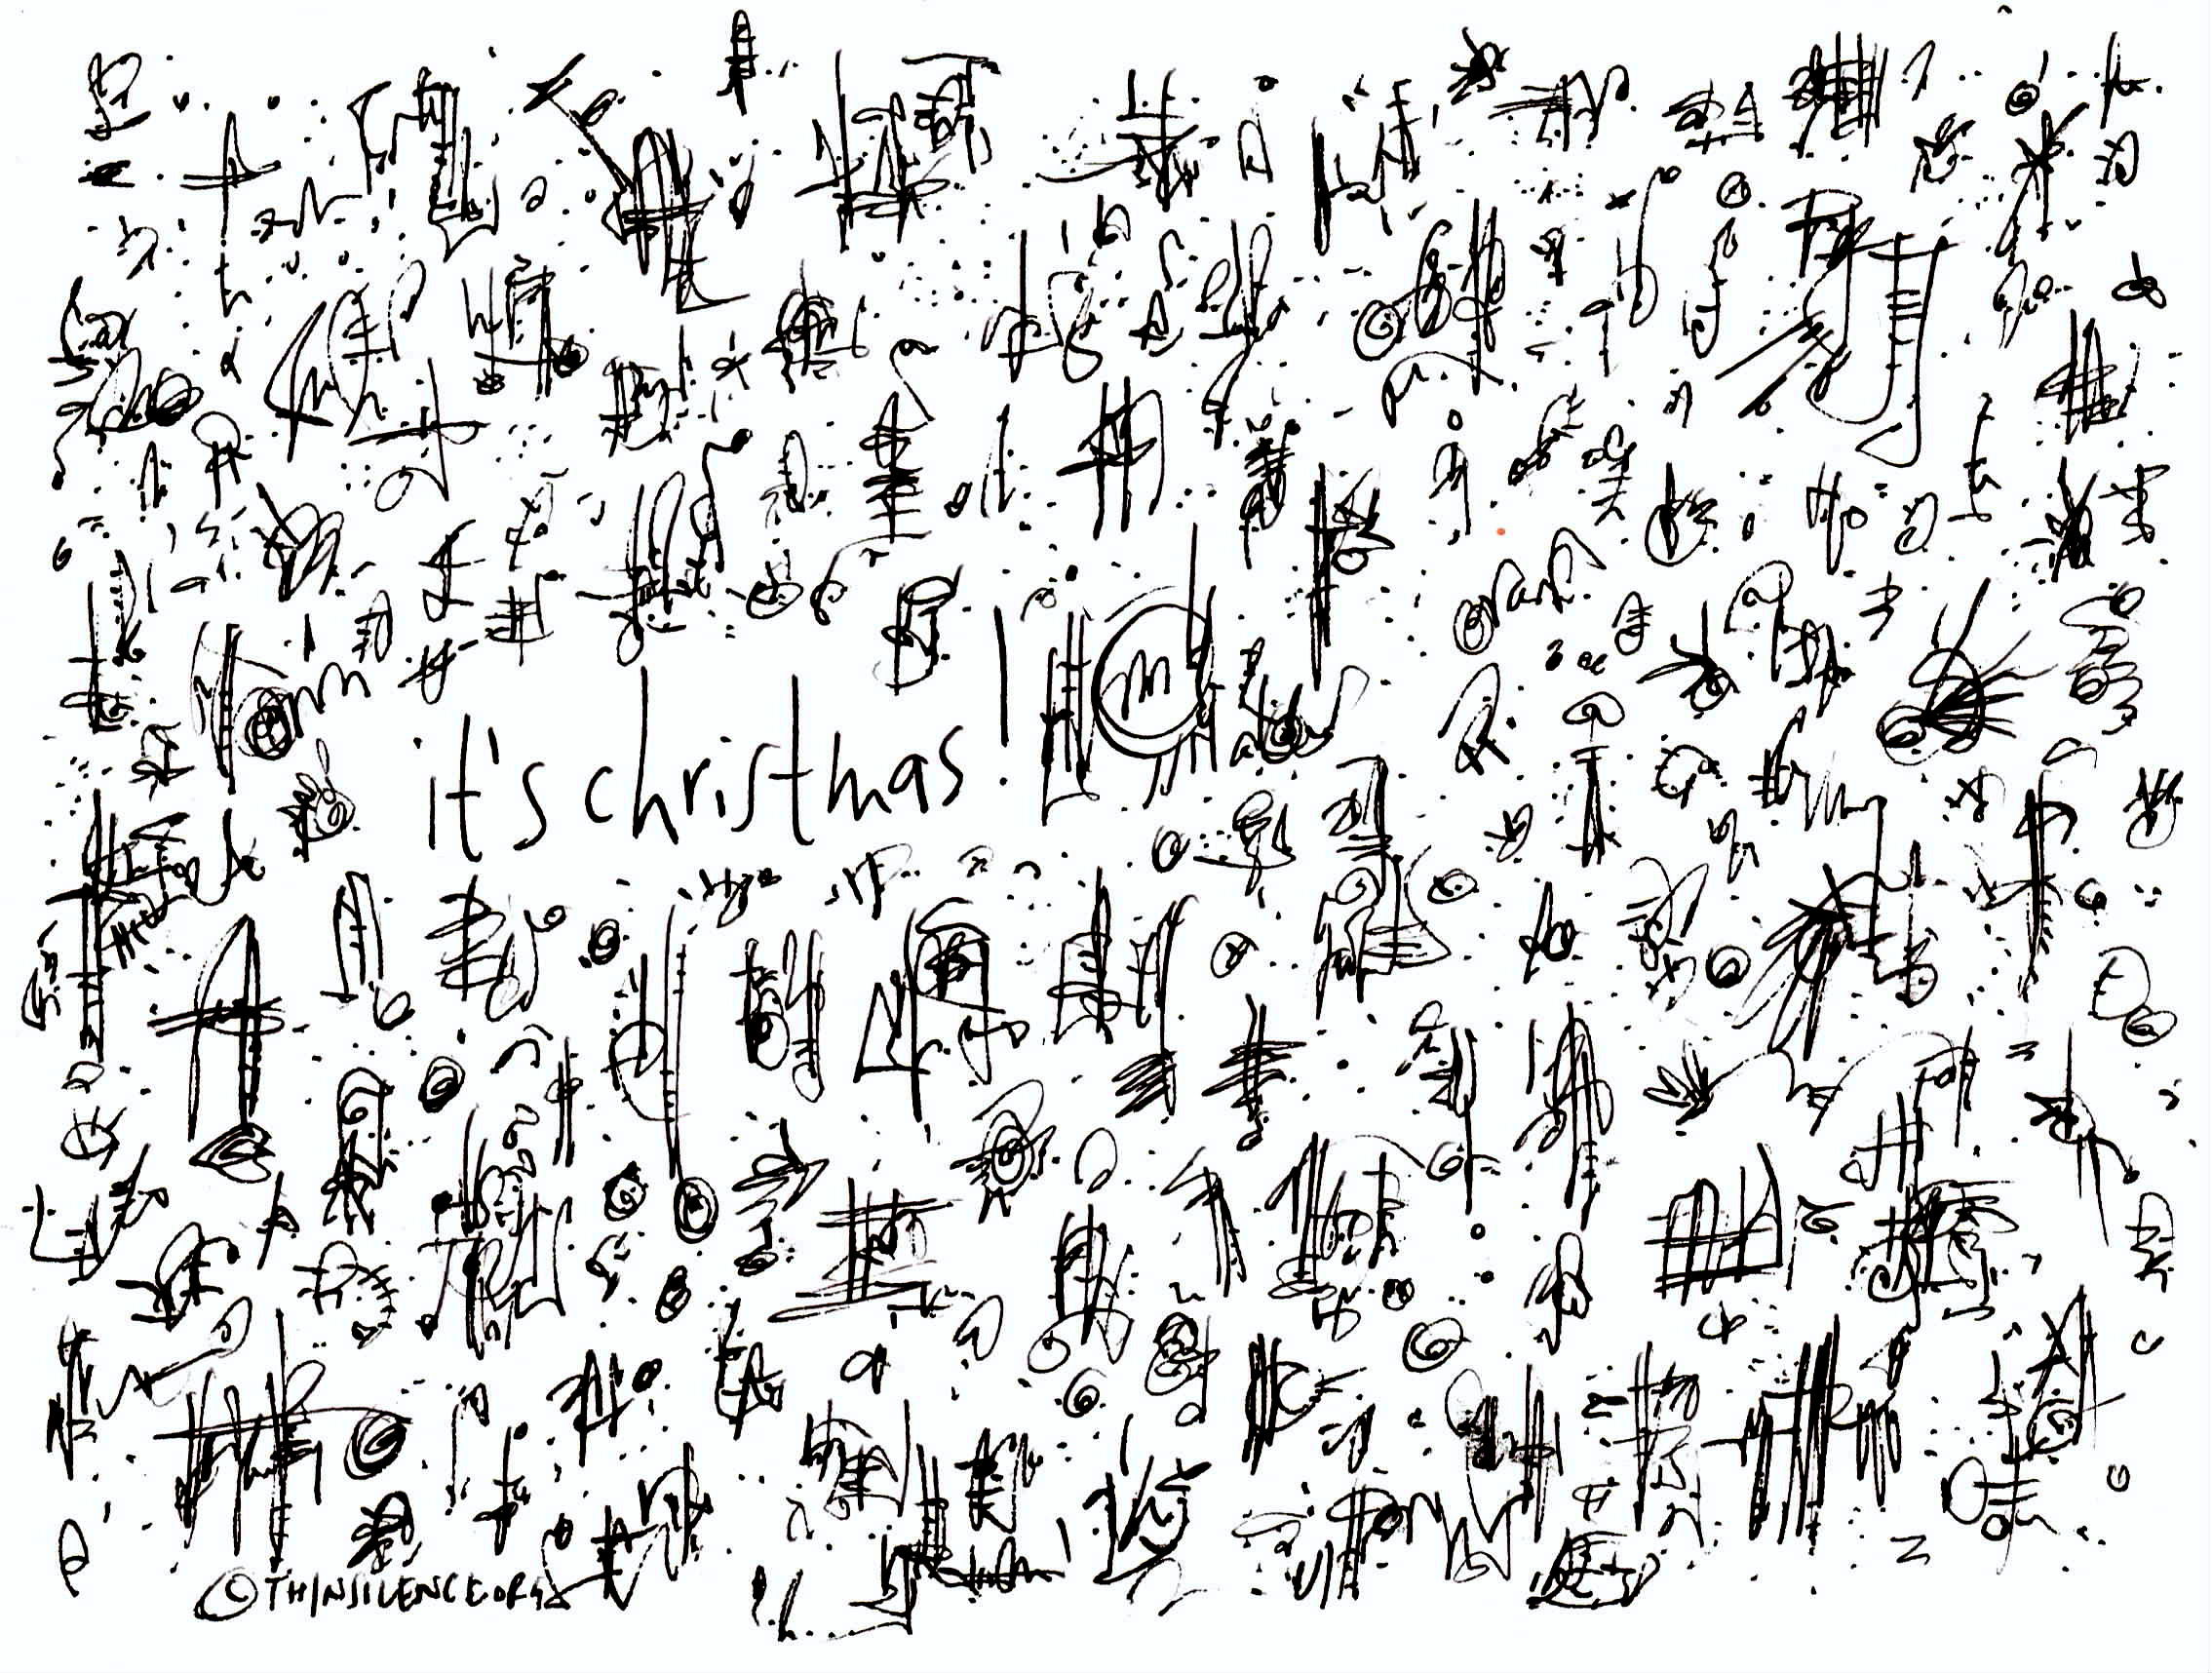 it's christmas!
© THINSILENCE.ORG